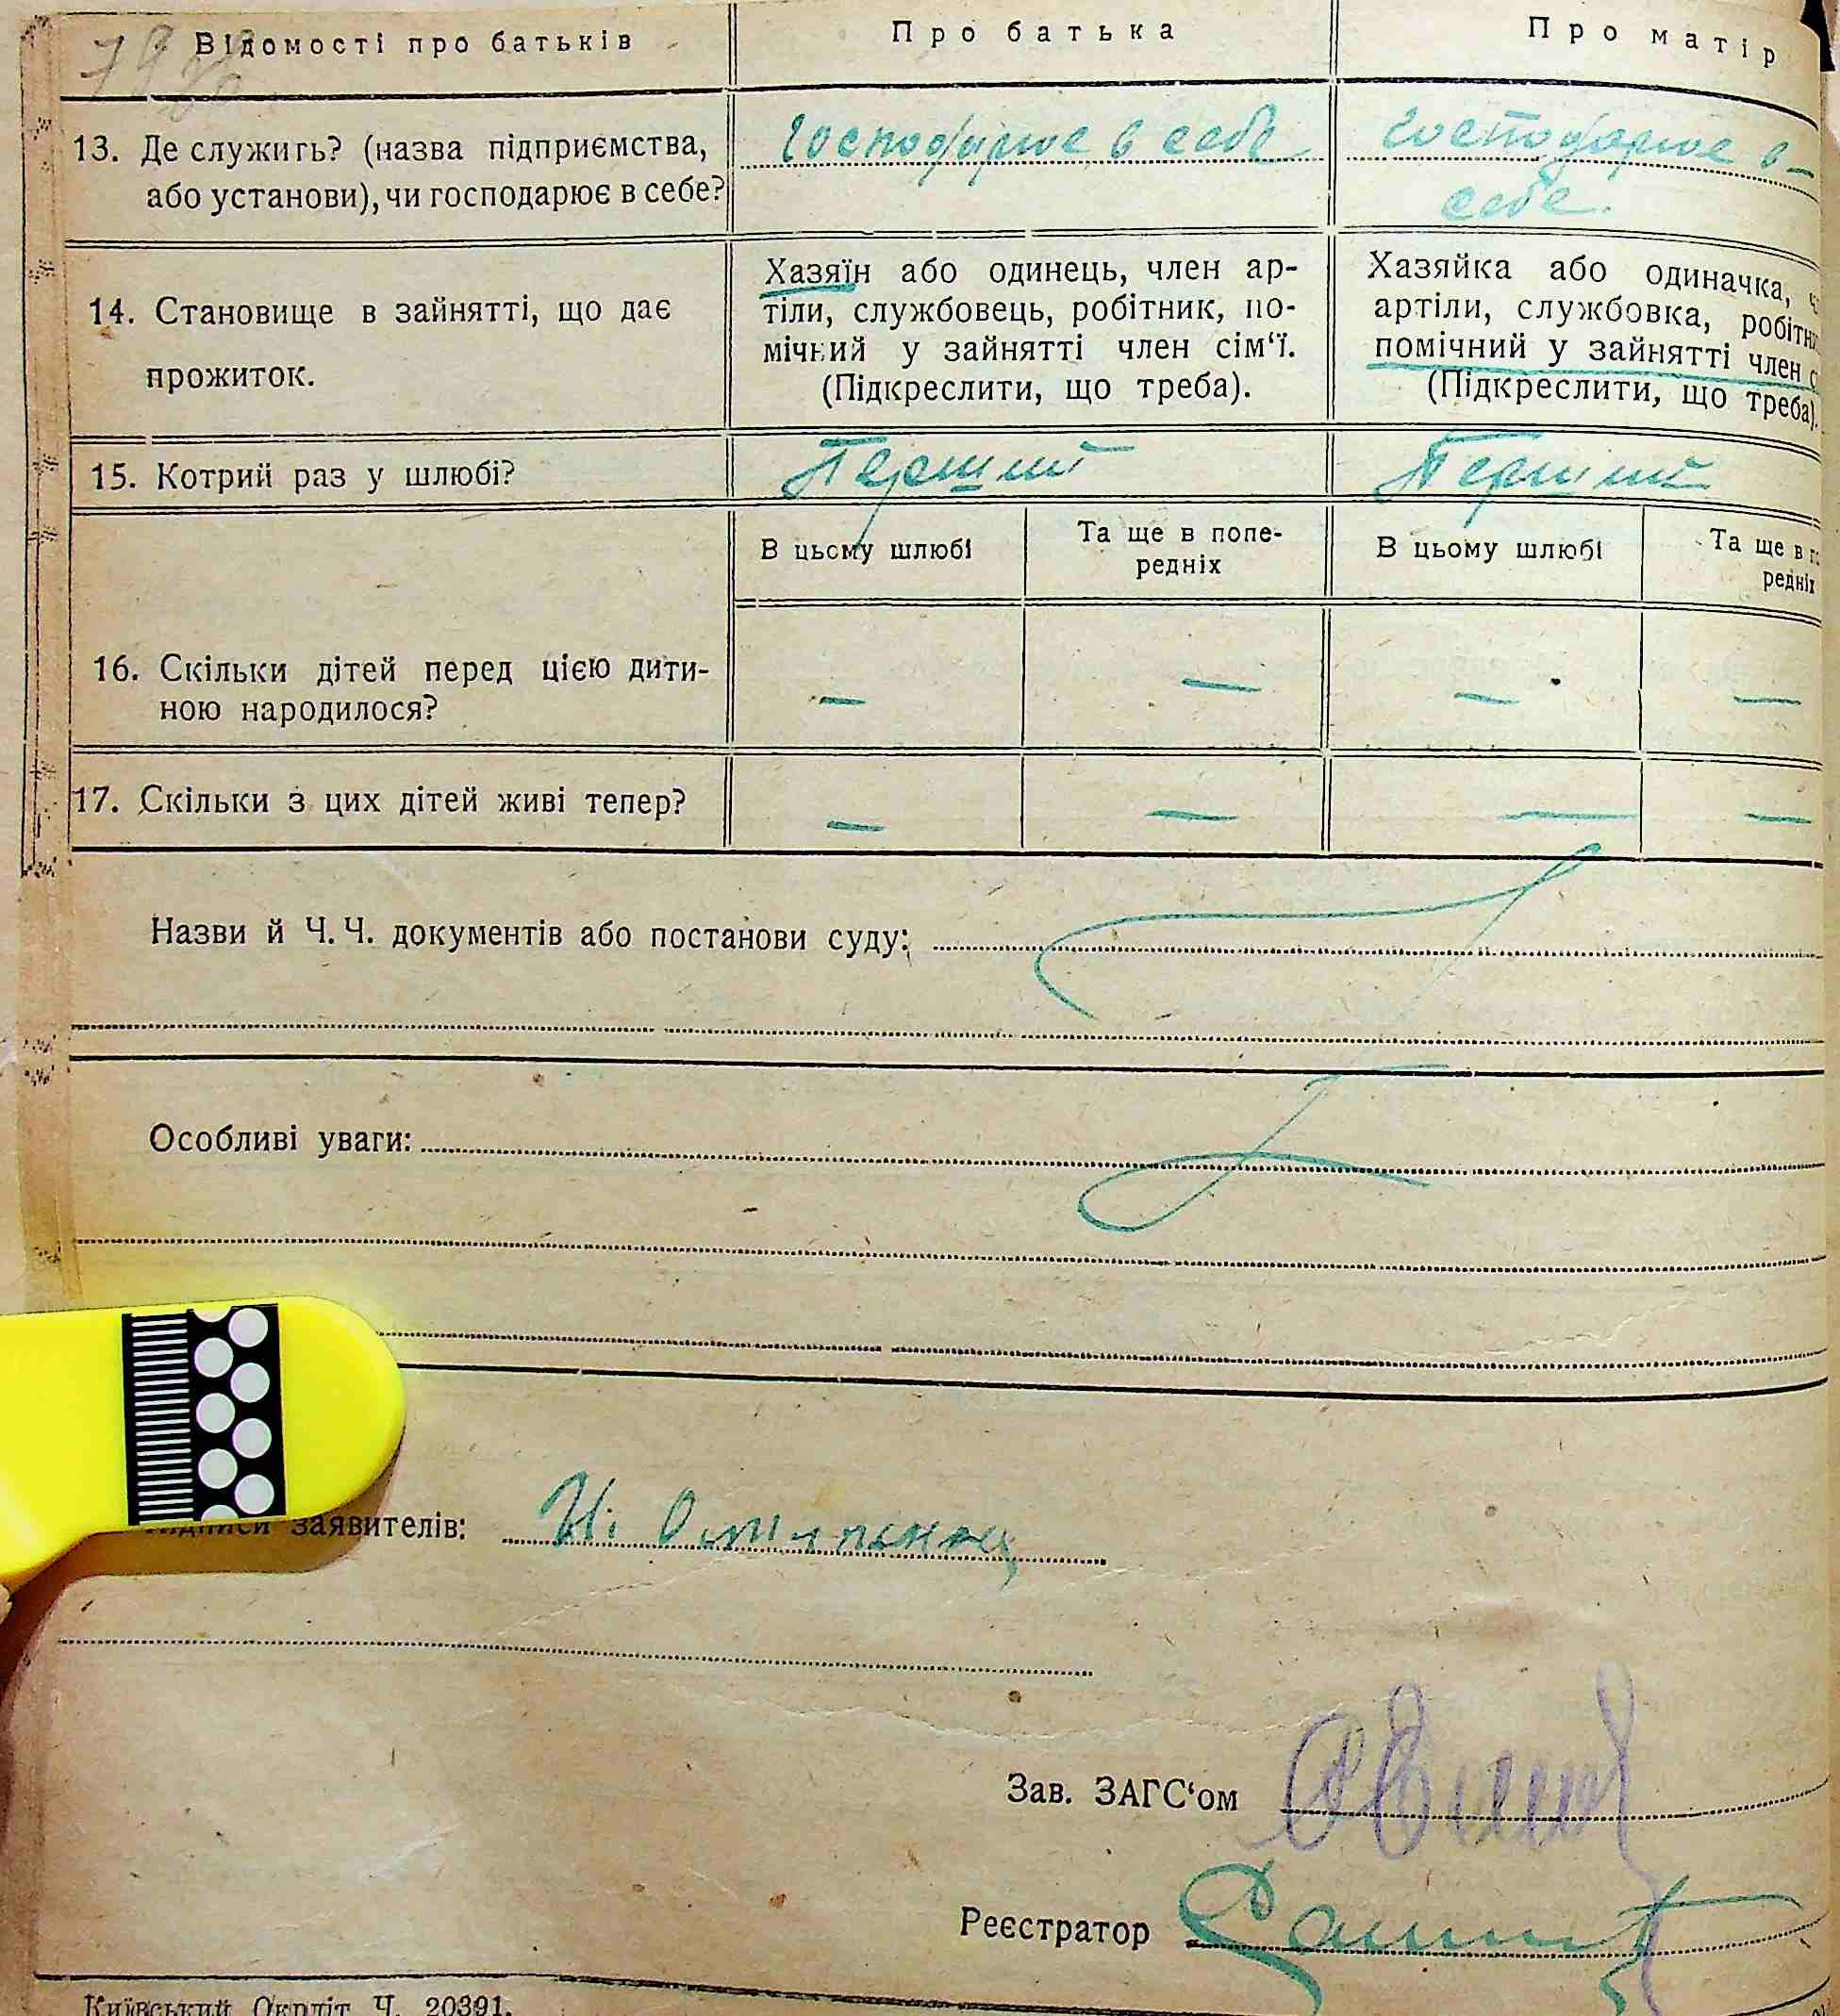 Відомості про батьків
Про батька
Про матір
13. Де служить? (назва підприємства,
або установи), чи господарює в себе?
господарює в себе
господарює в
себе.
14. Становище в зайнятті, що дає
прожиток.
Хазяїн або одинець, член ар-
тіли, службовець, робітник, по-
мічний у зайнятті член сім‘ї.
(Підкреслити, що треба).
Хазяйка або одиначка,
артіли, службовка,
помічний у зайнятті член
(Підкреслити, що треба).
15. Котрий раз у шлюбі?
Перший
Перший
В цьому шлюбі
Та ще в попе-
редніх
В цьому шлюбі
Та ще в
редніх
16. Скільки дітей перед цією дити-
ною народилося?
— — — —
17. Скільки з цих дітей живі тепер?
— — — —
Назви й Ч. Ч. документів або постанови суду:
Особливі уваги:
заявителів:
Зав. ЗАГС‘ом
Реєстратор
Київський Окрліт Ч. 20391.